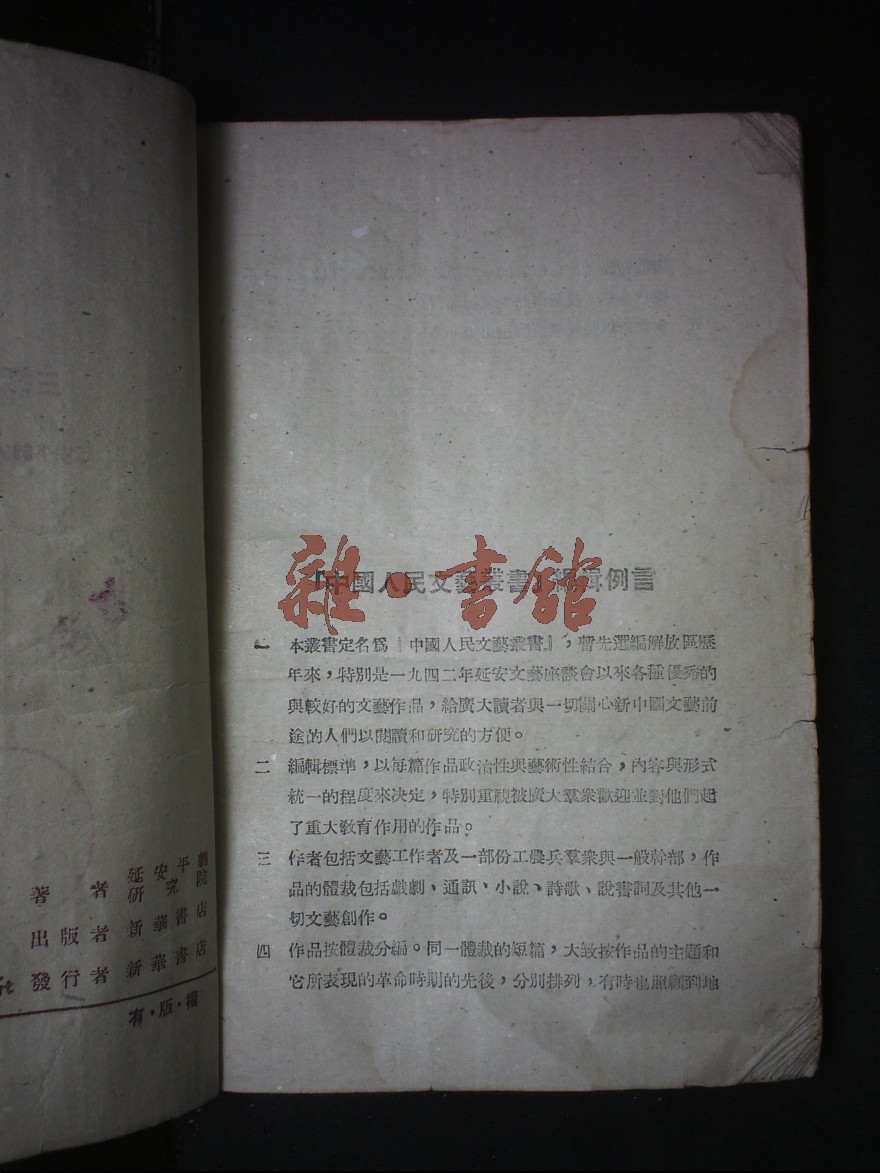 著者 延安平劇研究院
出版者 新華書店
發行者 新華書店
有·版·權
雜·書館
『中國人民文藝叢書』編輯例言
一 本叢書定名爲『中國人民文藝叢書』，暫先選編解放區歷
年來，特別是一九四二年延安文藝座談會以來各種優秀的
與較好的文藝作品，給廣大讀者與一切關心新中國文藝前
途的人們以閱讀和研究的方便。
二 編輯標準，以每篇作品政治性與藝術性結合，內容與形式
統一的程度來決定，特別重視被廣大羣衆歡迎並對他們起
了重大教育作用的作品。
三 作者包括文藝工作者及一部份工農兵羣衆與一般幹部，作
品的體裁包括戲劇、通訊、小說、詩歌、說書詞及其他一
切文藝創作。
四 作品按體裁分編。同一體裁的短篇，大致按作品的主題和
它所表現的革命時期的先後，分別排列，有時也照顧到地